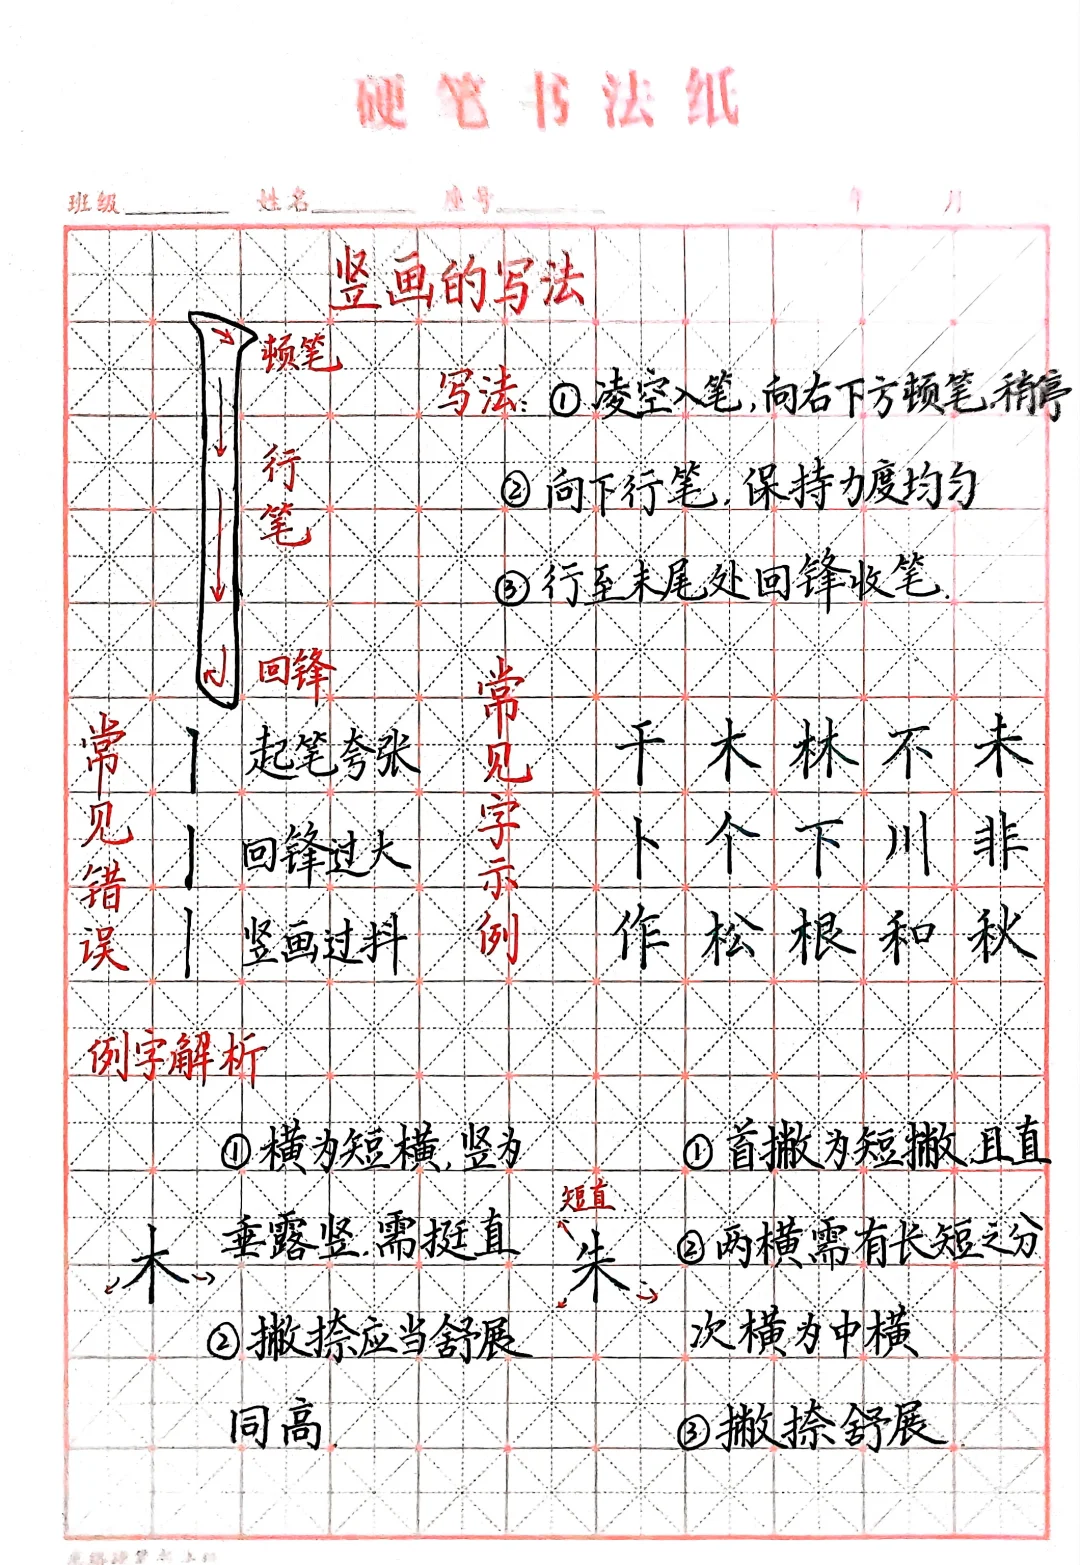 硬笔书法纸
班级 姓名 座号 年 月
竖画的写法
顿笔
行笔
回锋
写法：①凌空入笔，向右下方顿笔，稍停
②向下行笔，保持力度均匀
③行至末尾处回锋收笔.
常见错误
起笔夸张
回锋过大
竖画过抖
常见字示例
干 木 林 不 未
卜 个 下 川 非
作 松 根 和 秋
例字解析
木
①横为短横，竖为
垂露竖，需挺直
②撇捺应当舒展
同高.
短直
朱
①首撇为短撇，且直
②两横需有长短之分
次横为中横
③撇捺舒展